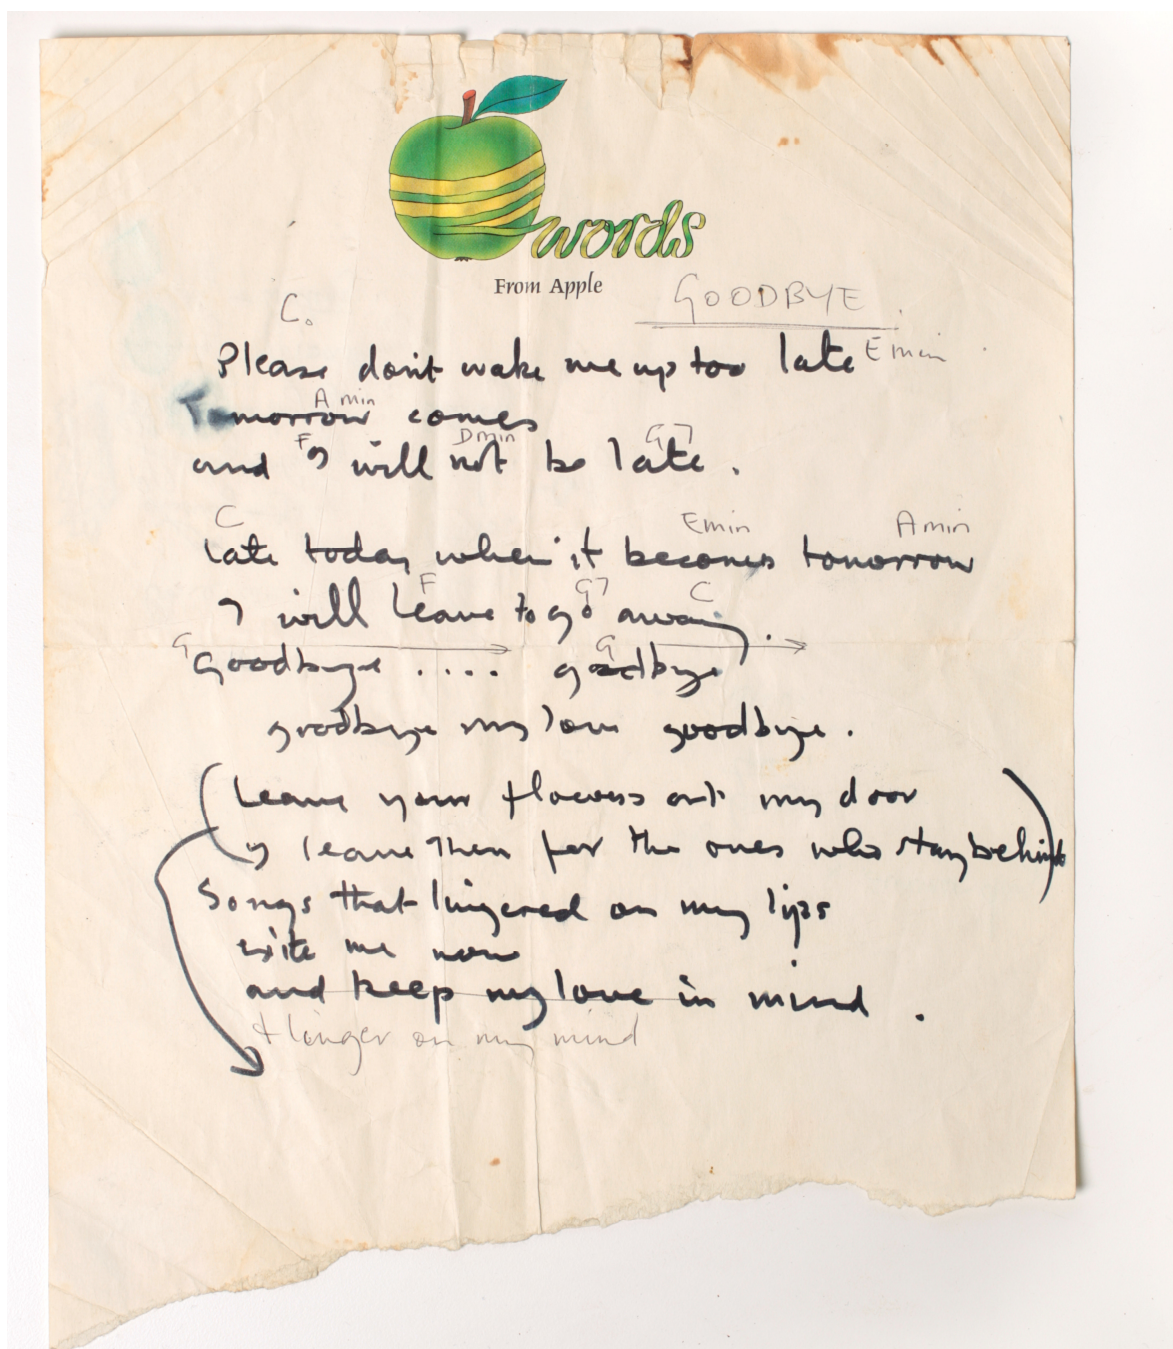 words
From Apple
GOODBYE.
C.
Please don't wake me up too late Emin
A min
Tomorrow comes
F Dmin G7
and I will not be late.
C Emin Amin
Late today when it becomes tomorrow
F G7 C
I will leave to go away.
G G
Goodbye .... goodbye
goodbye my love goodbye.
(Leave your flowers at my door
I leave them for the ones who stay behind)
Songs that lingered on my lips
exite me now
and keep my love in mind.
+ linger on my mind